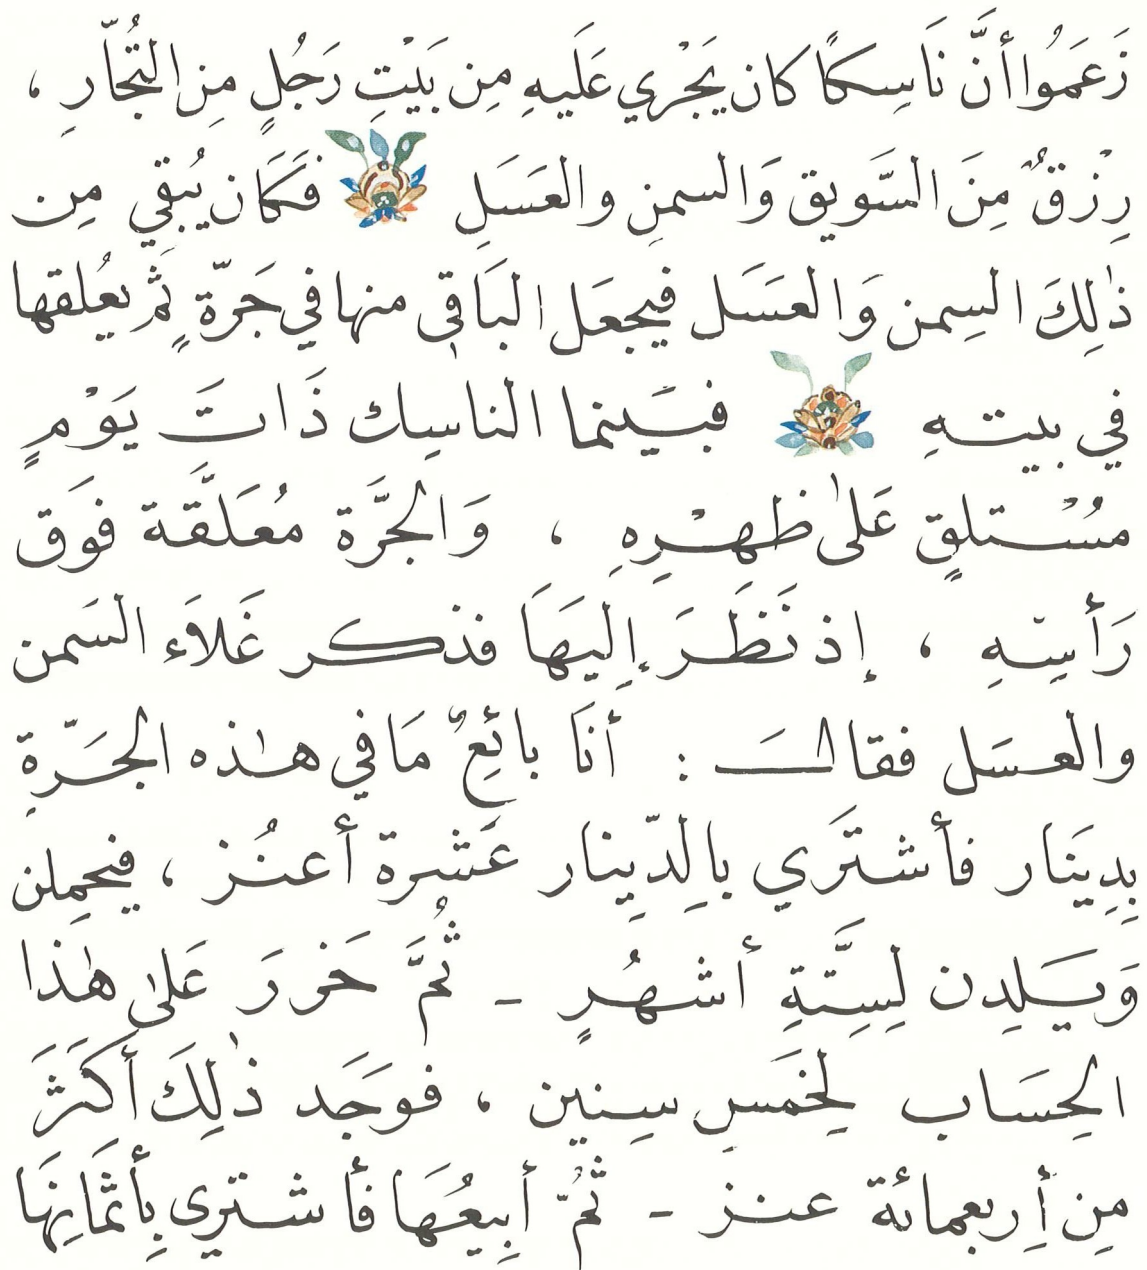 زَعَمُوا أنَّ نَاسِكًا كان يَجْري عَلَيهِ مِن بَيْتِ رَجُلٍ مِن التُجَّارِ ،
رِزْقٌ مِنَ السَّويق وَالسمنِ والعَسَلِ فَكَان يُبقي مِن
ذٰلِكَ السِمن وَالعَسَل فيجعَل البَاقي منها في جَرّةٍ ثم يعُلقها
في بيتهِ فبَينما الناسِك ذَاتَ يَوْمٍ
مسُْتلقٍ عَلىٰ ظهْرِهِ ، وَالجَرَّة مُعَلَّقَة فَوَق
رَأسِهِ ، إذ نَظَرَ إليهَا فذكر غَلاَء السَمن
والعسَل فقالَ : أنَا بائِعٌ مَا في هٰذه الجَرّةِ
بِدِينَار فأشتَري بالِدّيِنار عَشرة أعنُز ، فيحمِلن
وَيَلدِن لسِتَّةِ أشهُرٍ - ثُمَّ حَزرَ عَلىٰ هٰذا
الحِسَاب لِخَمسِ سِنين ، فوَجَد ذٰلِكَ أكَثَرَ
مِن أربعمائة عنز - ثُمّ أبيعُهَا فأشتري بِأثمَانِهَا